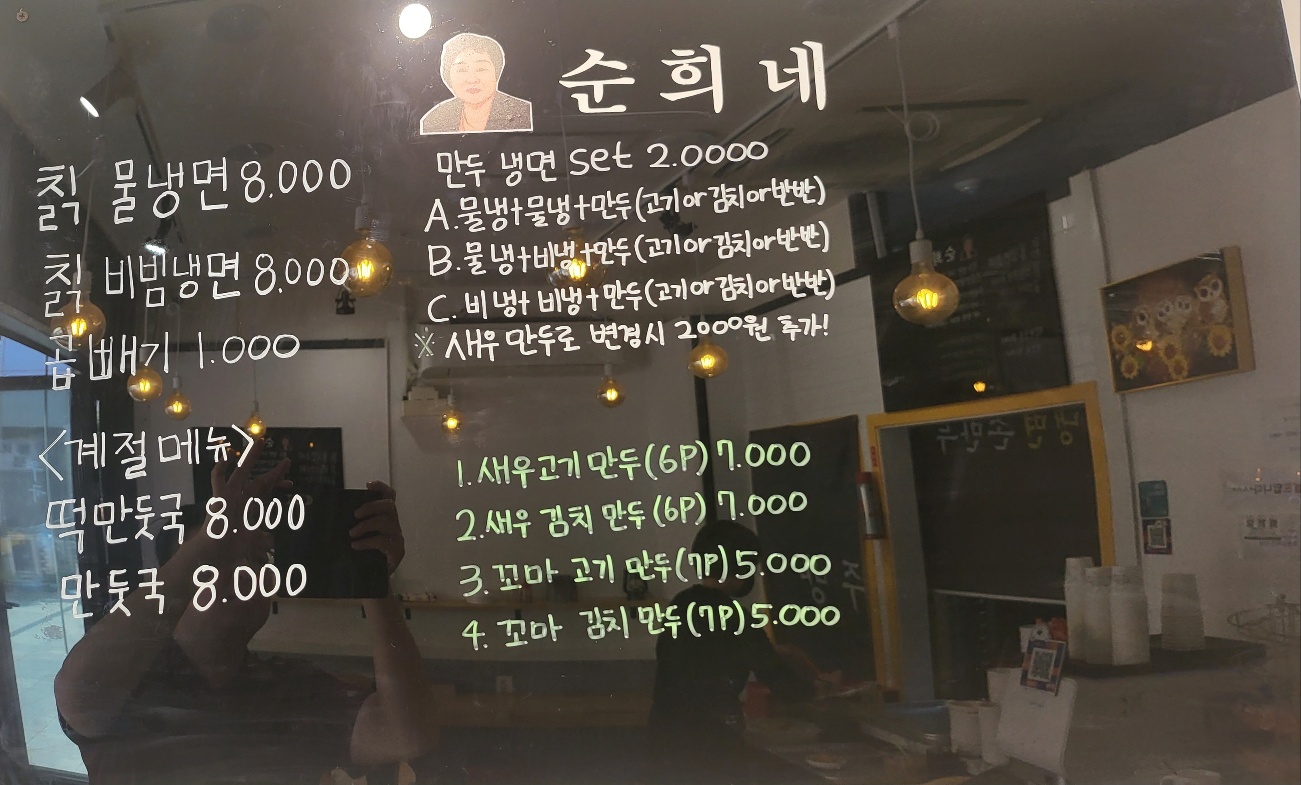 순희네
칡 물냉면 8.000
칡 비빔냉면 8.000
곱빼기 1.000
<계절메뉴>
떡만둣국 8.000
만둣국 8.000
만두 냉면 set 2.0000
A.물냉+물냉+만두(고기or김치or반반)
B.물냉+비냉+만두(고기or김치or반반)
C.비냉+비냉+만두(고기or김치or반반)
※새우만두로 변경시 2000원 추가!
1.새우고기만두(6P) 7.000
2.새우 김치 만두(6P) 7.000
3.꼬마 고기 만두(7P) 5.000
4.꼬마 김치 만두(7P) 5.000